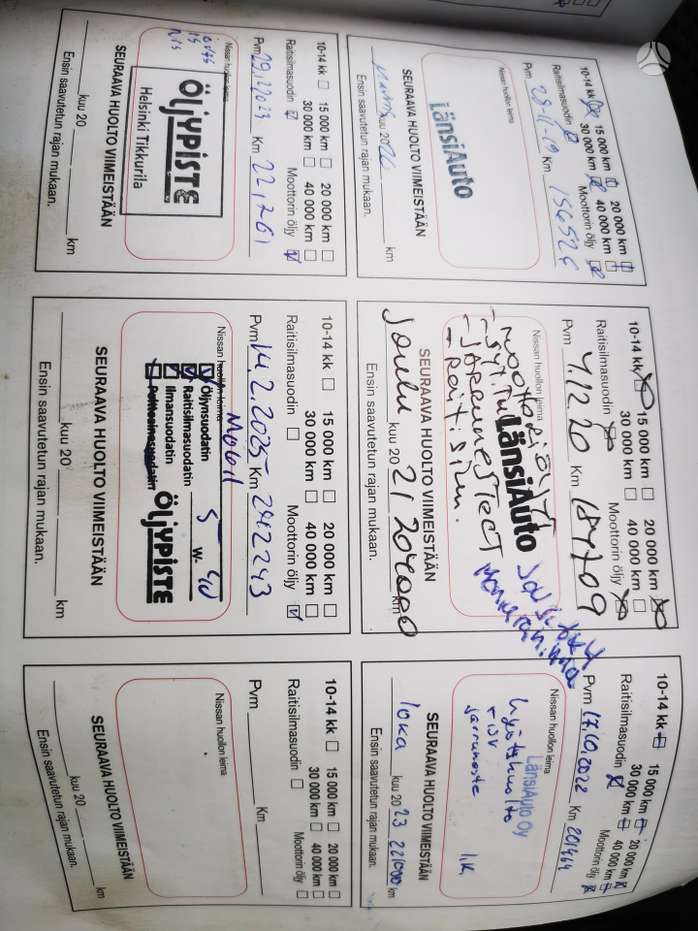 10-14 kk 15 000 km 20 000 km
30 000 km 40 000 km
Raitisilmasuodin Moottorin öljy
Pvm 28-11-19 Km 156526
Nissan huollon leima
LänsiAuto
SEURAAVA HUOLTO VIIMEISTÄÄN
kuu 20
km
Ensin saavutetun rajan mukaan.
10-14 kk 15 000 km 20 000 km
30 000 km 40 000 km
Raitisilmasuodin Moottorin öljy
Pvm 4.12.20 Km 184709
Nissan huollon leima
- MOOTTORIÖLJYT
LänsiAuto
- JARRUNESTEET
- RAIT.SILM.
SEURAAVA HUOLTO VIIMEISTÄÄN
Joulu kuu 20 21 204000 km
Ensin saavutetun rajan mukaan.
10-14 kk 15 000 km 20 000 km
30 000 km 40 000 km
Raitisilmasuodin Moottorin öljy
Pvm 17.10.2022 Km 201464
Nissan huollon leima
LänsiAuto Oy
jarruneste
SEURAAVA HUOLTO VIIMEISTÄÄN
loka kuu 20 23 221000 km
Ensin saavutetun rajan mukaan.
10-14 kk 15 000 km 20 000 km
30 000 km 40 000 km
Raitisilmasuodin Moottorin öljy
Pvm 29.12023 Km 221761
Nissan huollon leima
ÖLJYPISTE
Helsinki Tikkurila
SEURAAVA HUOLTO VIIMEISTÄÄN
kuu 20 km
Ensin saavutetun rajan mukaan.
10-14 kk 15 000 km 20 000 km
30 000 km 40 000 km
Raitisilmasuodin Moottorin öljy
Pvm 14.2.2025 Km 242243
Nissan huollon leima
Mobil
Öljynsuodatin 5 W- 40
Raitisilmasuodatin
Ilmansuodatin
Polttoainesuodatin
ÖLJYPISTE
SEURAAVA HUOLTO VIIMEISTÄÄN
kuu 20 km
Ensin saavutetun rajan mukaan.
10-14 kk 15 000 km 20 000 km
30 000 km 40 000 km
Raitisilmasuodin Moottorin öljy
Pvm Km
Nissan huollon leima
SEURAAVA HUOLTO VIIMEISTÄÄN
kuu 20 km
Ensin saavutetun rajan mukaan.